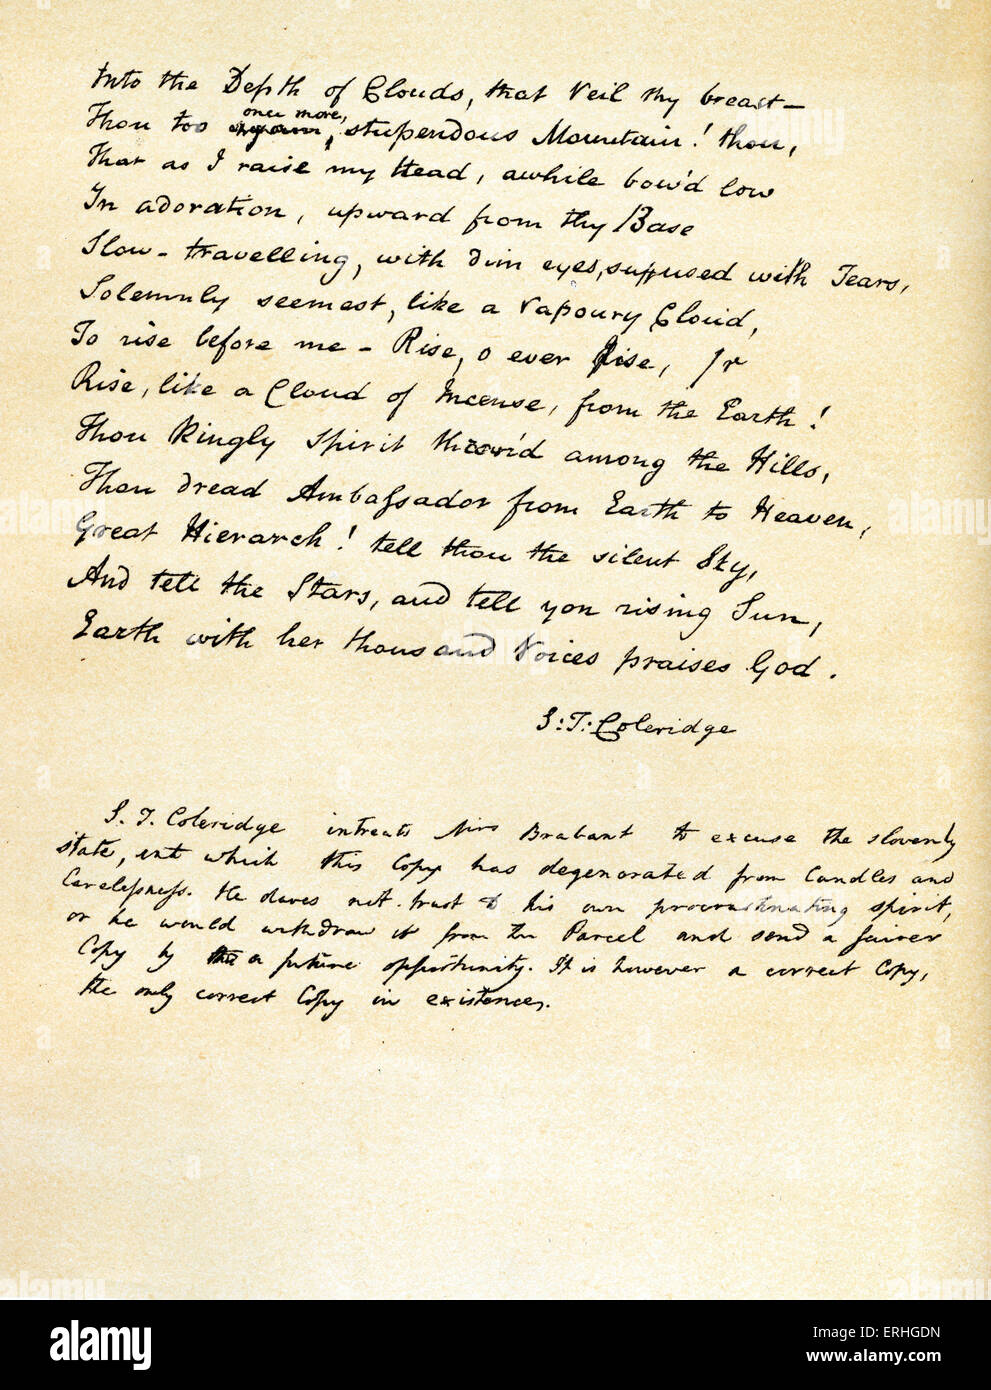 Into the Depth of Clouds, that Veil thy breast—
once more,
Thou too again, stupendous Mountain! thou,
That as I raise my Head, awhile bow'd low
In adoration, upward from thy Base
Slow-travelling, with dim eyes, suffused with Tears,
Solemnly seemest, like a Vapoury Cloud,
To rise before me — Rise, o ever Rise,
Rise, like a Cloud of Incense, from the Earth!
Thou Kingly Spirit thron'd among the Hills,
Thou dread Ambassador from Earth to Heaven,
Great Hierarch! tell thou the silent Sky,
And tell the Stars, and tell yon rising Sun,
Earth with her thousand Voices praises God.
S:T:Coleridge
S. T. Coleridge intreats Mrs Brabant to excuse the slovenly
state, into which this Copy has degenerated from Candles and
Carelessness. He dares not trust to his own procrastinating spirit,
or he would withdraw it from the Parcel and send a fairer
Copy by a future opportunity. It is however a correct Copy,
the only correct Copy in existence.
alamy
a
alamy
Image ID: ERHGDN
www.alamy.com